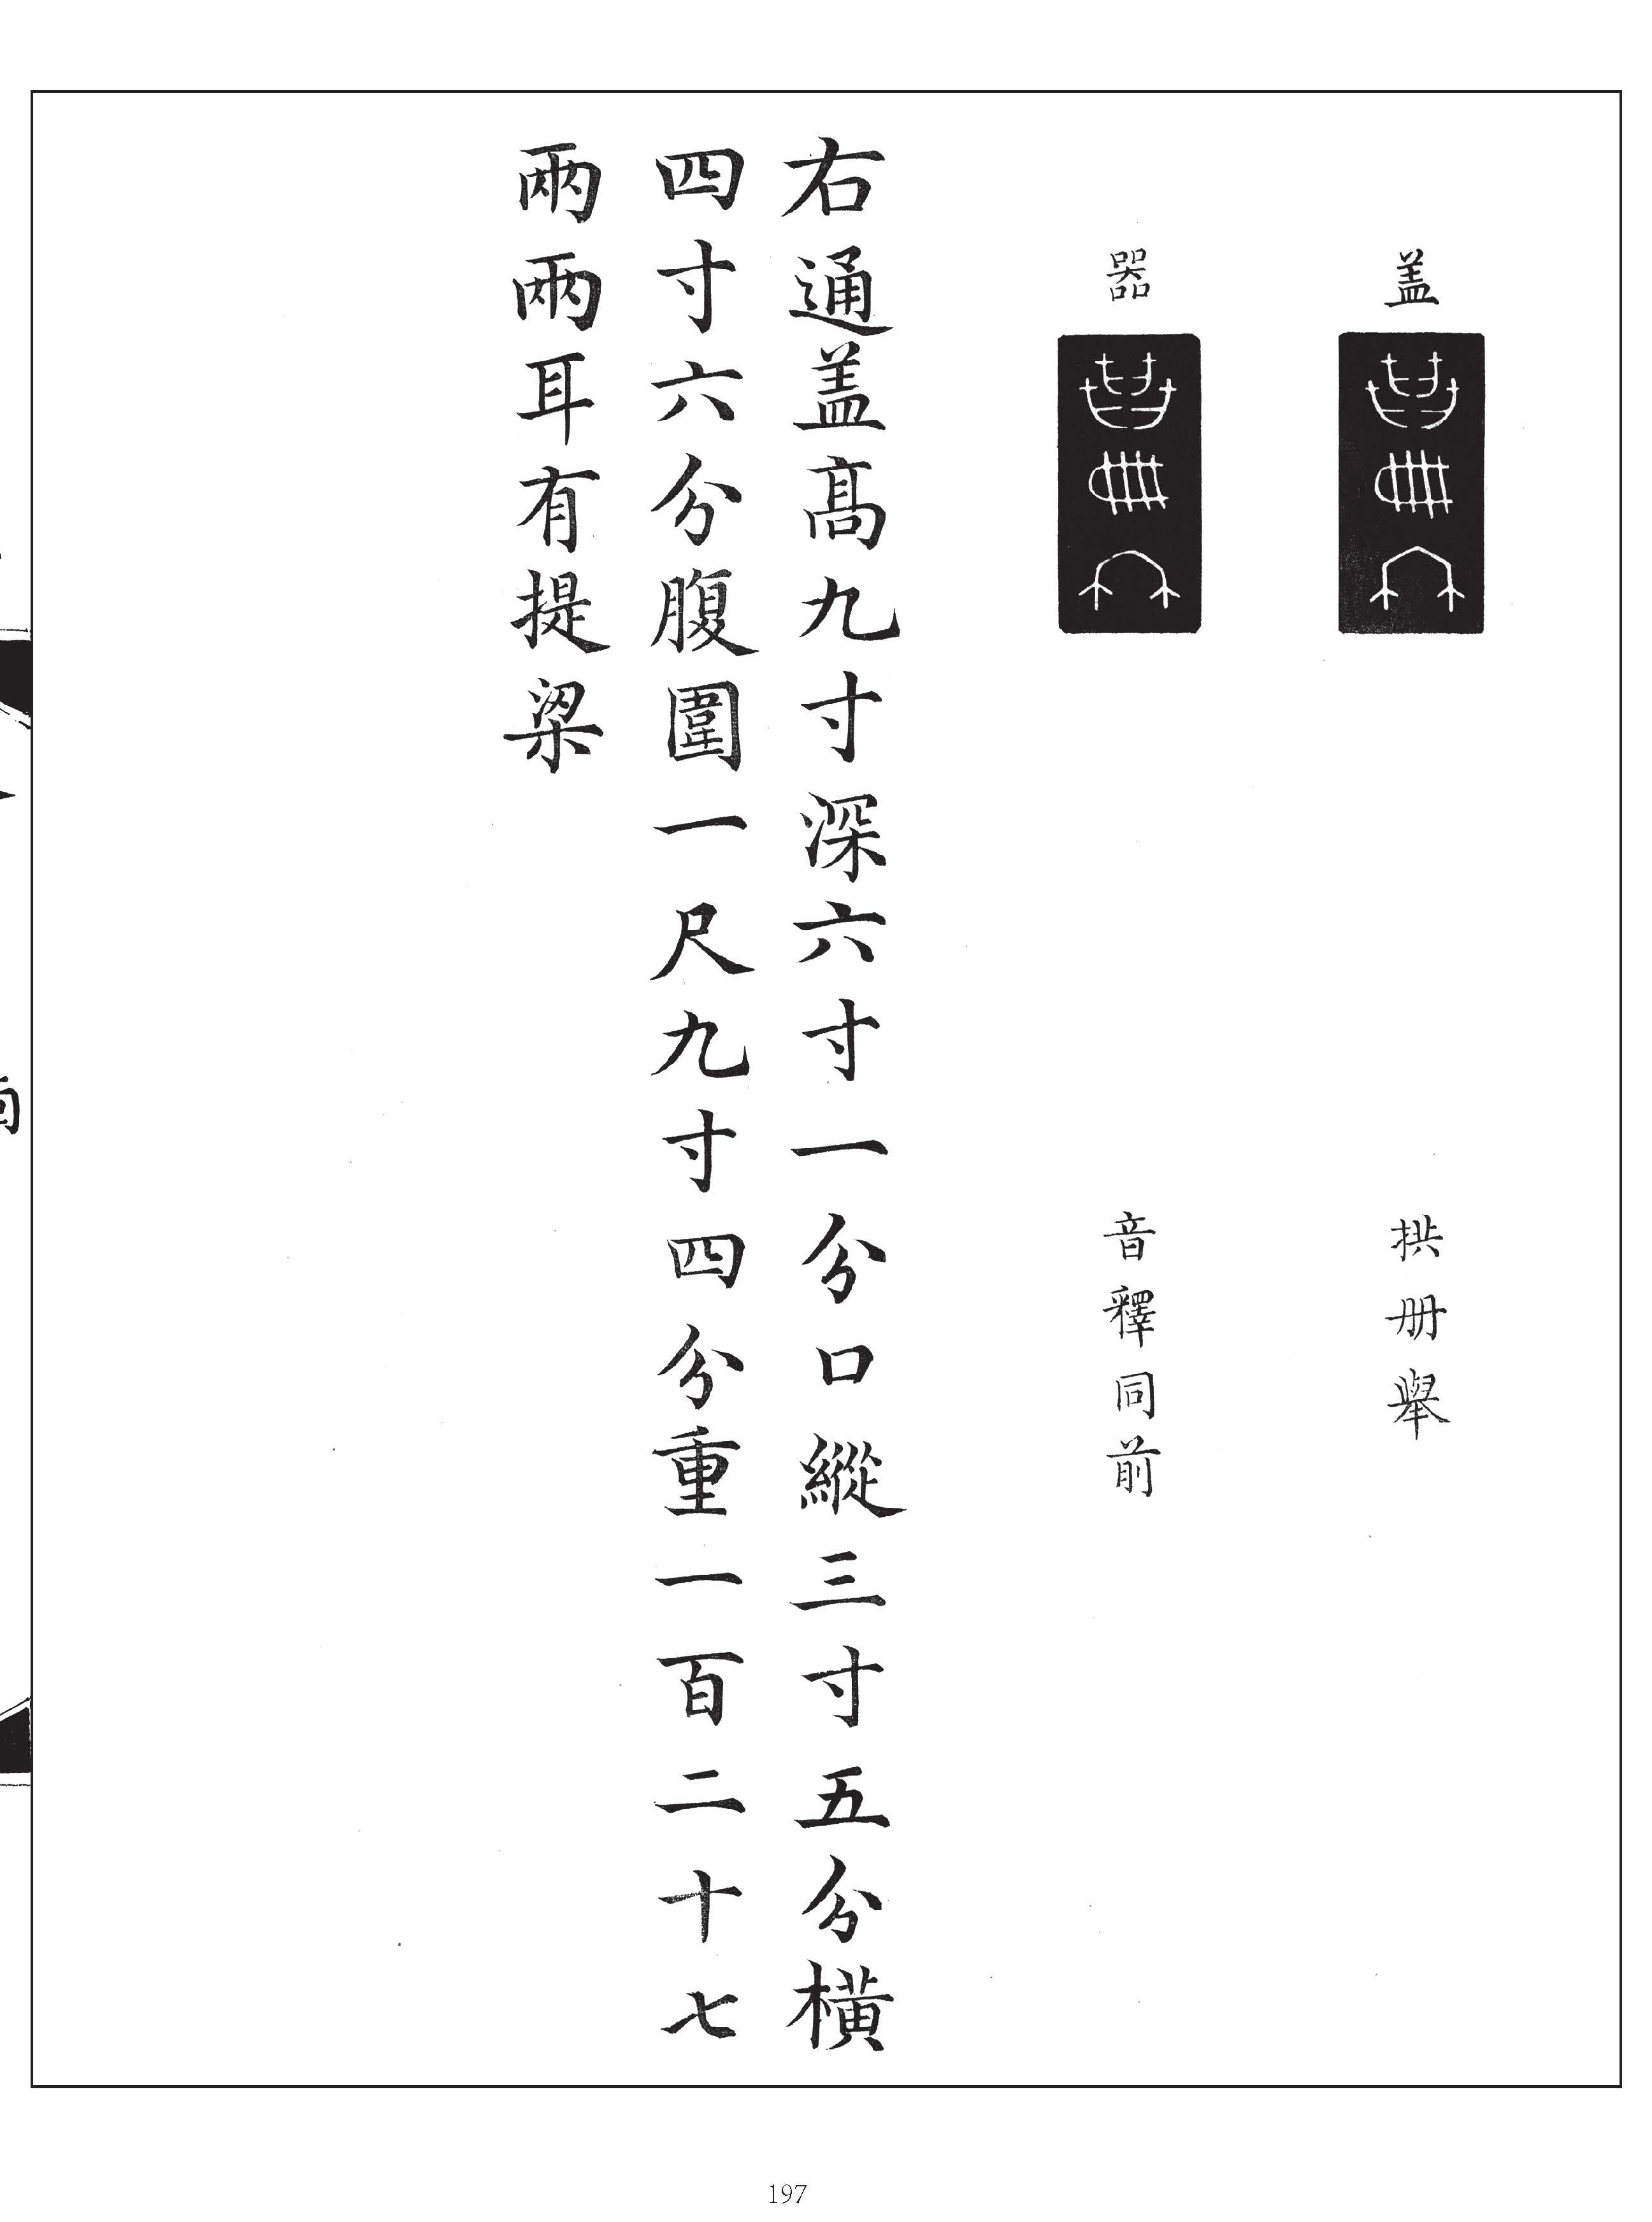 盖
拱册舉
器
音釋同前
右通盖髙九寸深六寸一分口縱三寸五分橫
四寸六分腹圍一尺九寸四分重一百二十七
兩兩耳有提梁
197